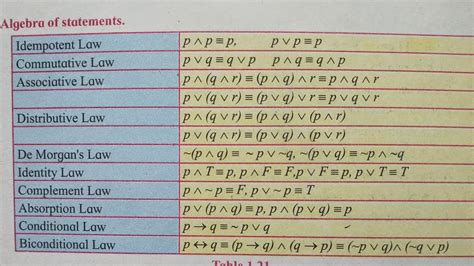 Algebra of statements.
Idempotent Law p ∧ p ≡ p, p ∨ p ≡ p
Commutative Law p ∨ q ≡ q ∨ p p ∧ q ≡ q ∧ p
Associative Law p ∧ (q ∧ r) ≡ (p ∧ q) ∧ r ≡ p ∧ q ∧ r
p ∨ (q ∨ r) ≡ (p ∨ q) ∨ r ≡ p ∨ q ∨ r
Distributive Law p ∧ (q ∨ r) ≡ (p ∧ q) ∨ (p ∧ r)
p ∨ (q ∧ r) ≡ (p ∨ q) ∧ (p ∨ r)
De Morgan's Law ~(p ∧ q) ≡ ~ p ∨ ~q, ~(p ∨ q) ≡ ~p ∧ ~q
Identity Law p ∧ T ≡ p, p ∧ F ≡ F, p ∨ F ≡ p, p ∨ T ≡ T
Complement Law p ∧ ~ p ≡ F, p ∨ ~ p ≡ T
Absorption Law p ∨ (p ∧ q) ≡ p, p ∧ (p ∨ q) ≡ p
Conditional Law p → q ≡ ~ p ∨ q
Biconditional Law p ↔ q ≡ (p → q) ∧ (q → p) ≡ (~p ∨ q) ∧ (~q ∨ p)
Table 1.21